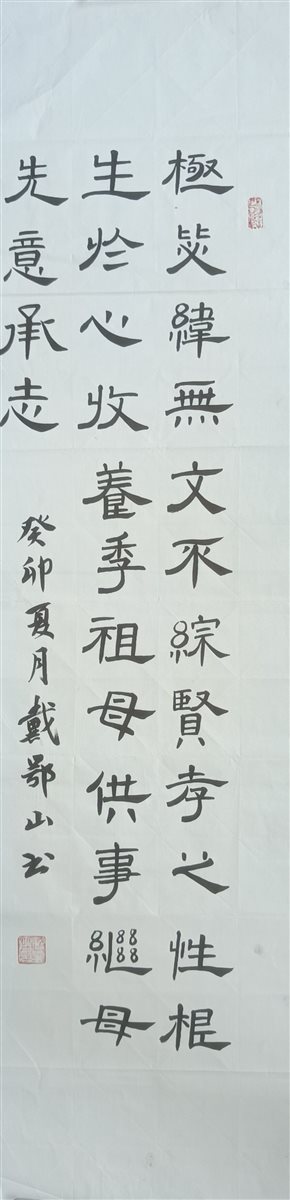 極毖緯無文不綜賢孝之性根
生於心收養季祖母供事繼母
先意承志
癸卯夏月戴鄂山书